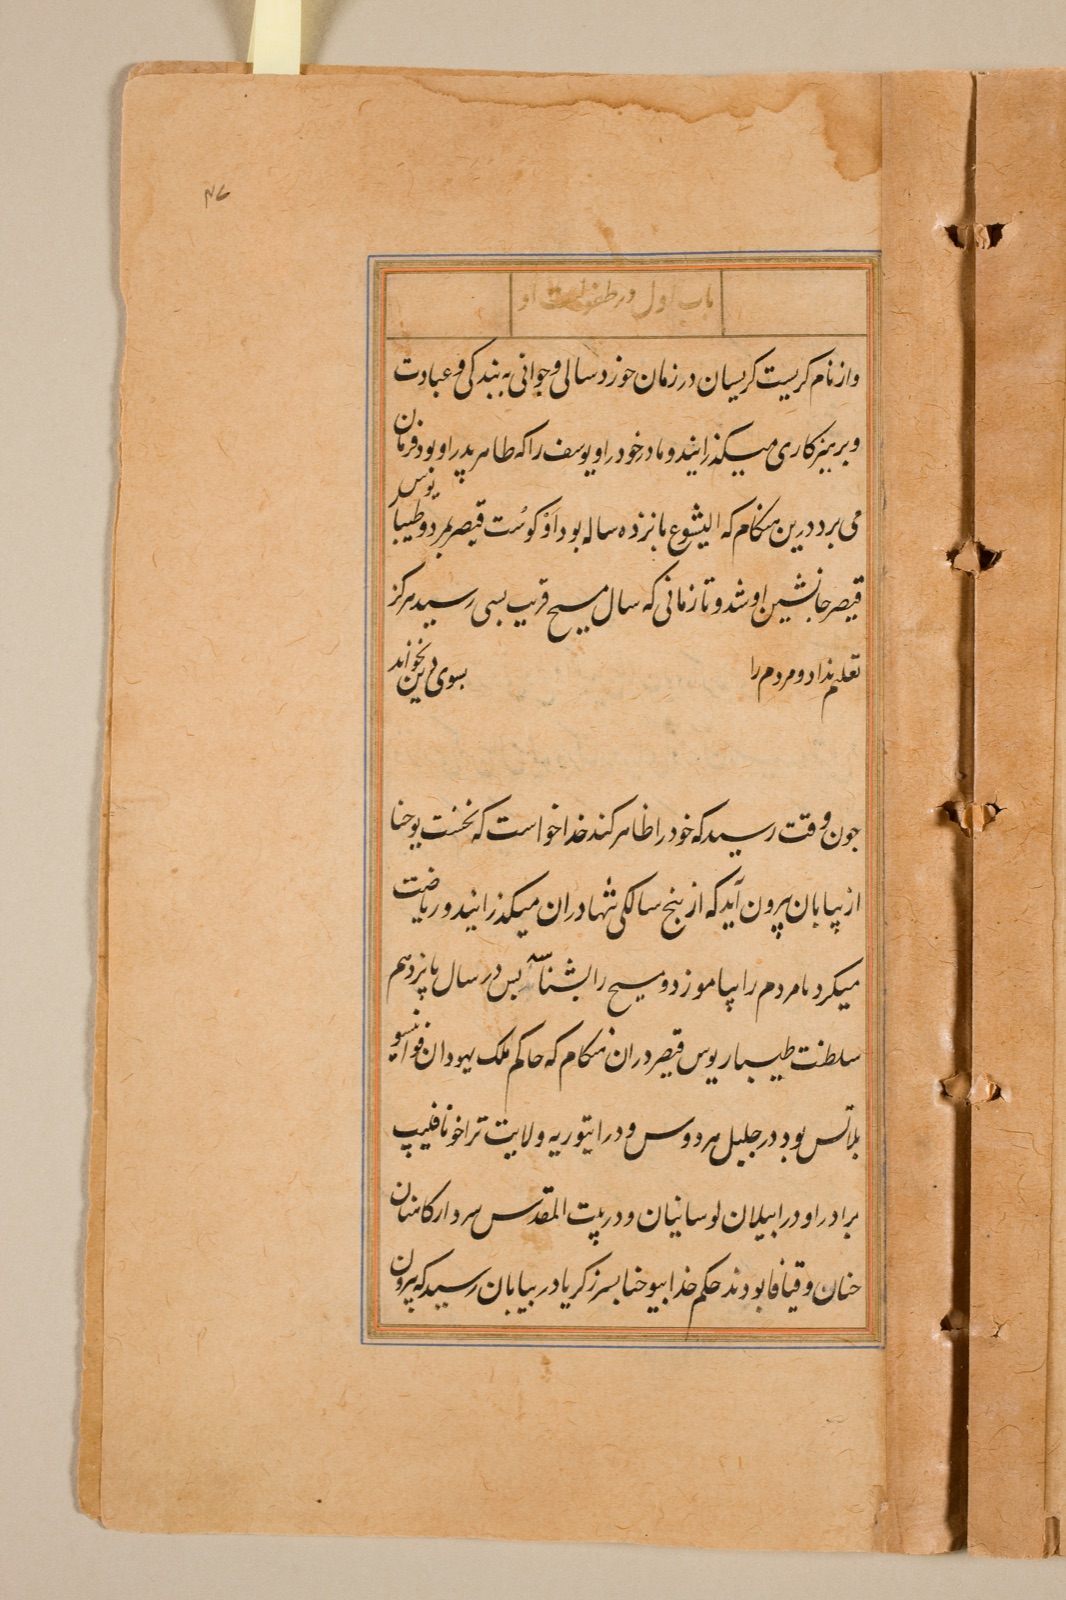 ۴۶
باب اول در طفولیت او
و از نام کریست کریسیان در زمان خورد سالی و جوانی به بندکی و عبادت
و پرهیزکاری میکذرانید و مادر خود را و یوسف را که ظاهر پدر او بود فرمان
می برد درین هنکام که الیشوع پانزده ساله بود اَوْکوُست قیصر بمرد و طیباریوس
قیصر جانشین او شد و تا زمانی که سال مسیح قریب بسی رسید هرکز
تعلیم نداد و مردم را بسوی دین نخواند
چون وقت رسید که خود را ظاهر کند خدا خواست که نخست یوحنا
از بیابان بیرون آید که از پنج سالکی تنها دران میکذرانید و ریاضت
میکرد تا مردم را بیاموزد و مسیح را بشناسد پس در سال پانزدهم
سلطنت طیباریوس قیصر دران هنکام که حاکم ملک یهودان فوانسیو
پلاتس بود در جلیل هردوس و در ایتوریه و لایت تراخونا فلیپ
برادر او در ابیلان لوسانیان و در بیت المقدس سردار کاهنان
حنان و قیافا بودند حکم خدا بیوحنا پسر زکریا در بیابان رسید که بیرون